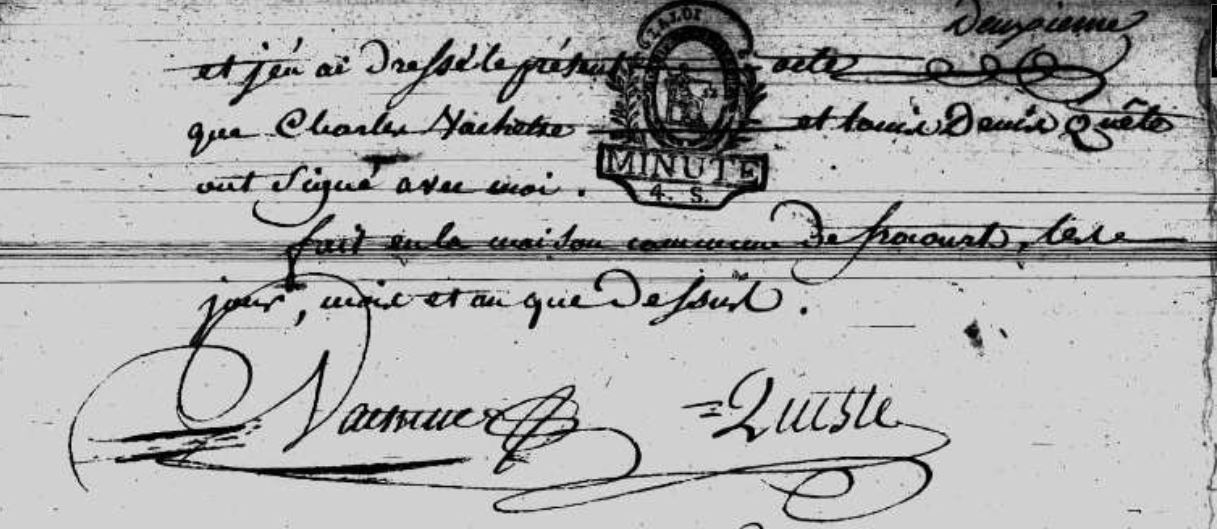 Deuxieme
et j'en ai dressé le présent acte
que Charles Vachette et Louis Denis Quête
ont signé avec moi.
MINUTE
4. S.
fait en la maison commune de les
jour, mois et an que dessus.
Quiste